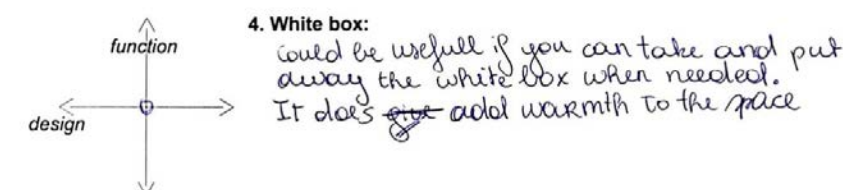 function
design
4. White box:
could be usefull if you can take and put
away the white box when needed.
It does give add warmth to the space